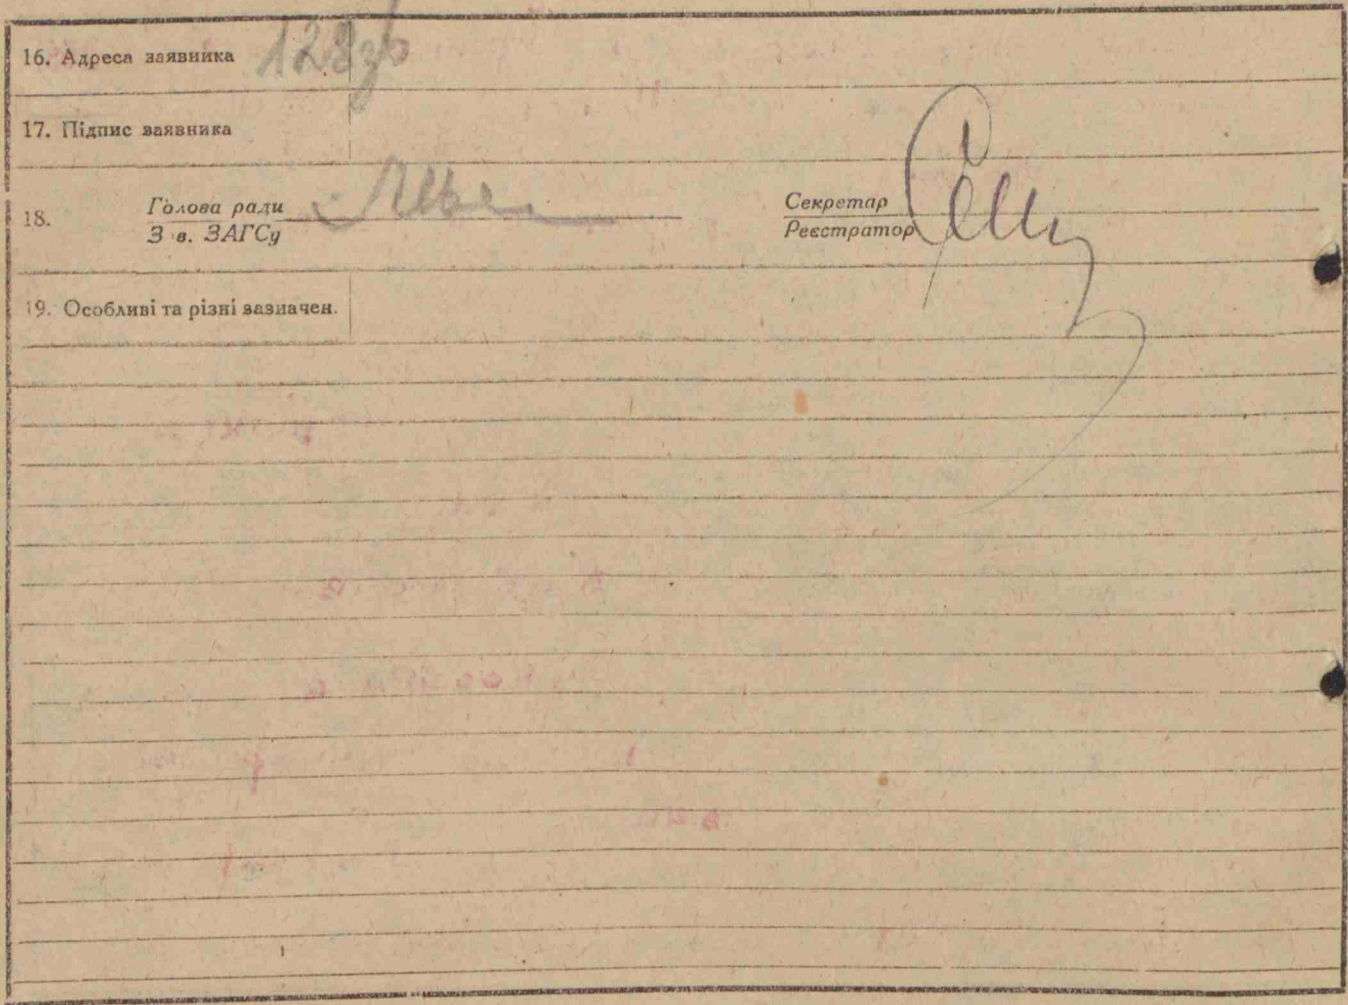 16. Адреса заявника 128зр
17. Підпис заявника
18. Голова ради Секретар
З в. ЗАГСу Реєстратор
19. Особливі та різні зазначен.